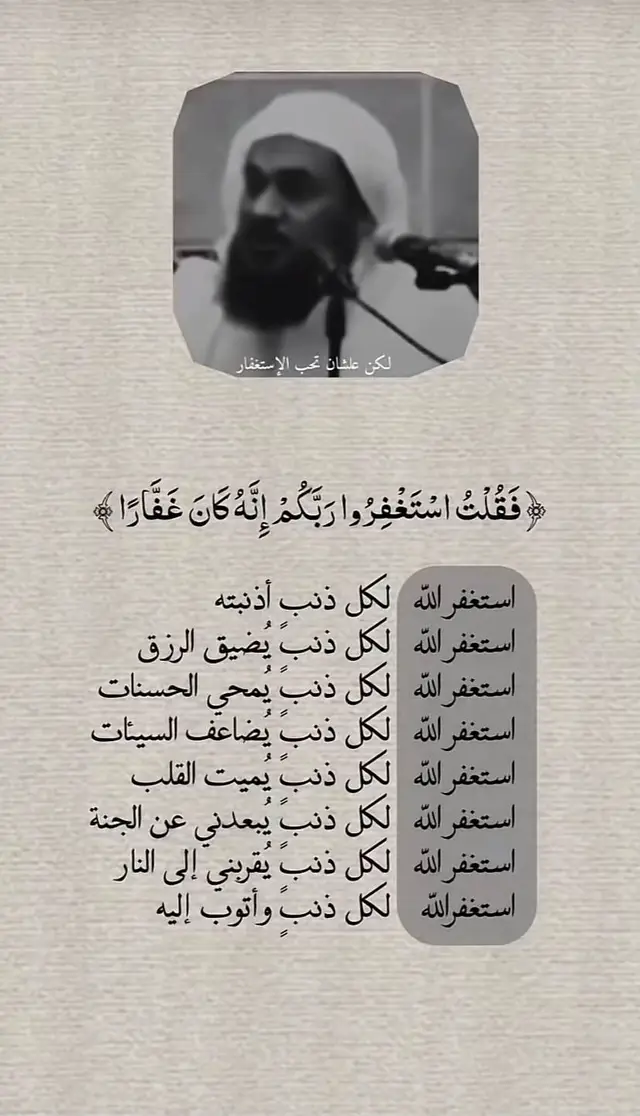 لكن علشان تحب الإستغفار
﴿فَقُلْتُ اسْتَغْفِرُوا رَبَّكُمْ إِنَّهُ كَانَ غَفَّارًا﴾
استغفر الله لكل ذنبٍ أذنبته
استغفر الله لكل ذنبٍ يُضيق الرزق
استغفر الله لكل ذنبٍ يُمحي الحسنات
استغفر الله لكل ذنبٍ يُضاعف السيئات
استغفر الله لكل ذنبٍ يُميت القلب
استغفر الله لكل ذنبٍ يُبعدني عن الجنة
استغفر الله لكل ذنبٍ يُقربني إلى النار
استغفرالله لكل ذنبٍ وأتوب إليه